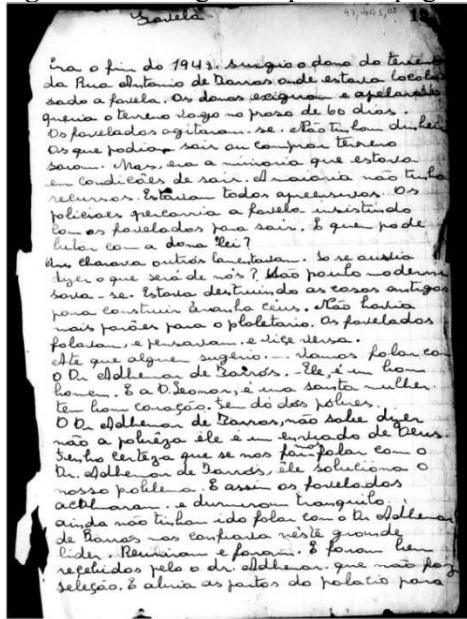 Favela
Era o fim do 1948 surgio o dono do terreno
da Rua Antonio de Barros onde estava locali
sado a favela. Os donos exigiram e apelaram
queria o terreno vago no praso de 60 dias.
Os favelados agitaram-se. Não tinham dinheiro
Os que podiam sair ou comprar terreno
sairam. Mas, era a minoria que estava
em condicões de sair. A maioria não tinha
recursos. Estavam todos apreensivos. Os
policiaes percorria a favela insistindo
com os favelados para sair. E quem pode
lutar com a dona lei?
Uns chorava outros lamentavam. So se auvia
dizer o que será de nós? São paulo moderni
sava-se. Estava destruindo as casas antigas
para construir aranha céus. Não havia
mais porões para o ploletario. Os favelados
falavam, e pensavam. e viçe versa.
Ate que alguem sugerio... Vamos falar com
O Dr Adhemar de Barros. - Ele, é um bom
homem. E a D. Leonor, é uma santa mulher.
tem bom coração. Tem dó dos pobres.
O Dr. Adhemar de Barros, não sabe dizer
não a pobrêza êle é um enviado de Deus.
Tenho certeza que se nos for falar com o
Dr. Adhemar de Barros, êle soluciona o
nosso poblema. E assim os favelados
acalmaram. e durmiram tranquilo.
ainda não tinham ido falar com o Dr Adhemar
de Barros mas confiava nêste grande
lider. Reuniram e foram. E foram bem
reçebidos pelo o dr. Adhemar. que não faz
seleção. E abria as portas do palacio para